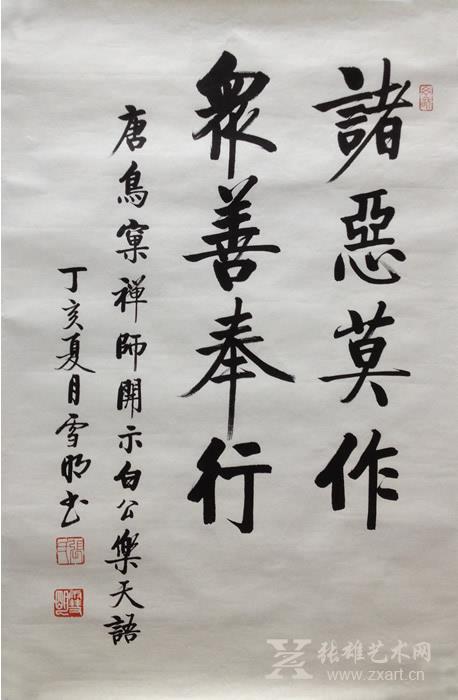 諸惡莫作
眾善奉行
唐鳥窠禪師開示白公樂天語
丁亥夏月雪明书
张雄艺术网
www.zxart.cn